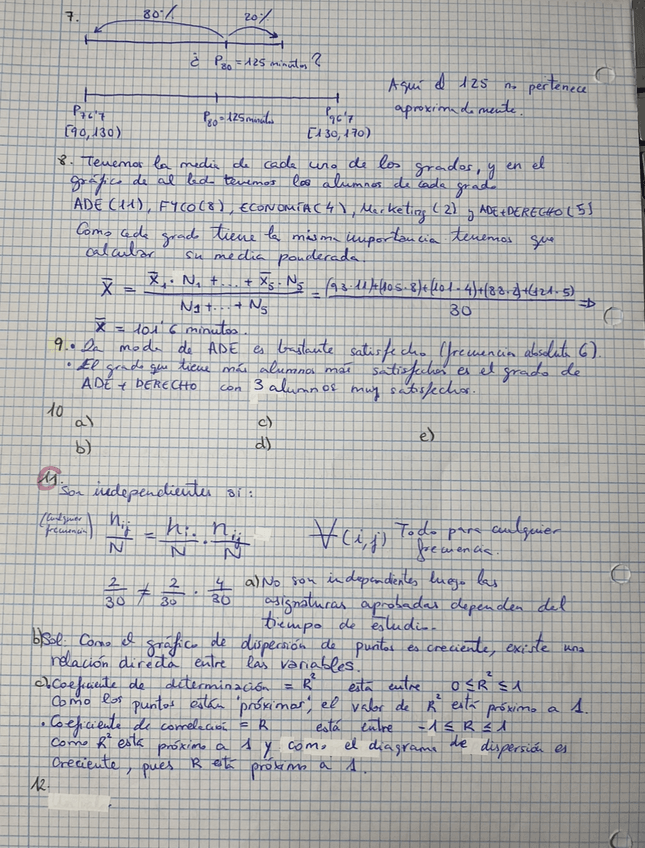 7.
80% 20%
¿ P80 = 125 minutos ?
Aquí el 125 no pertenece
aproximadamente.
P76'7 P80 = 125 minutos P96'7
[90,130) [130,170)
8. Tenemos la media de cada uno de los grados, y en el
gráfico de al lado tenemos los alumnos de cada grado
ADE (11), FYCO(8), ECONOMÍA(4), Marketing (2) y ADE+DERECHO (5)
Como cada grado tiene la misma importancia tenemos que
calcular su media ponderada
X̄ = X̄1·N1 + ... + X̄5·N5 / N1 + ... + N5 = (93·11)+(105·8)+(101·4)+(83·2)+(121·5) / 30 ⇒
X̄ = 101'6 minutos.
9. • La moda de ADE es bastante satisfecho (frecuencia absoluta 6).
• El grado que tiene más alumnos más satisfechos es el grado de
ADE + DERECHO con 3 alumnos muy satisfechos.
10
a) c) e)
b) d)
11. Son independientes si:
(cualquier frecuencia) nij/N = ni·/N · nij/N ∀(i,j) Todo para cualquier
frecuencia.
2/30 ≠ 2/30 · 4/30 a) No son independientes luego las
asignaturas aprobadas dependen del
tiempo de estudio.
b) Sol. Como el gráfico de dispersión de puntos es creciente, existe una
relación directa entre las variables.
c) Coeficiente de determinación = R² está entre 0 ≤ R² ≤ 1
Como los puntos están próximos, el valor de R² está próximo a 1.
• Coeficiente de correlación = R está entre -1 ≤ R ≤ 1
como R² está próximo a 1 y como el diagrama de dispersión es
creciente, pues R está próximo a 1.
12.